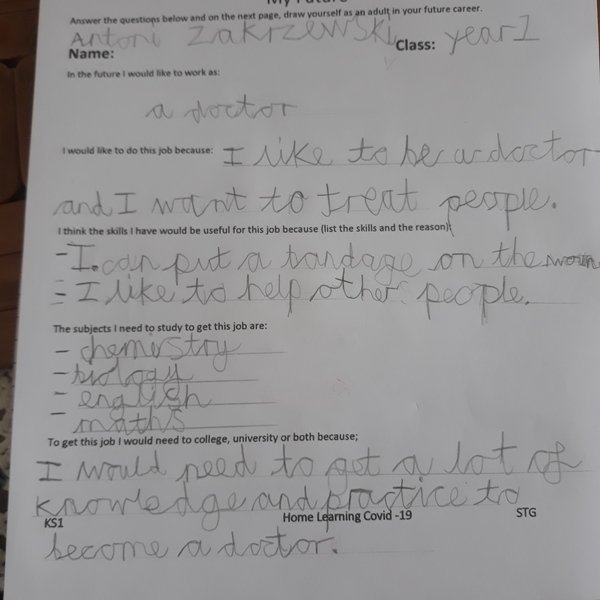 My Future
Answer the questions below and on the next page, draw yourself as an adult in your future career.
Antoni Zakrzewski
Name:
Class: year1
In the future I would like to work as:
a doctor
I would like to do this job because: I like to be a doctor
and I want to treat people.
I think the skills I have would be useful for this job because (list the skills and the reason):
- I can put a bandage on the
- I like to help other people.
The subjects I need to study to get this job are:
- chemistry
- biology
- english
- maths
To get this job I would need to college, university or both because;
I would need to get a lot of
knowledge and practice to
KS1 Home Learning Covid -19 STG
become a doctor.